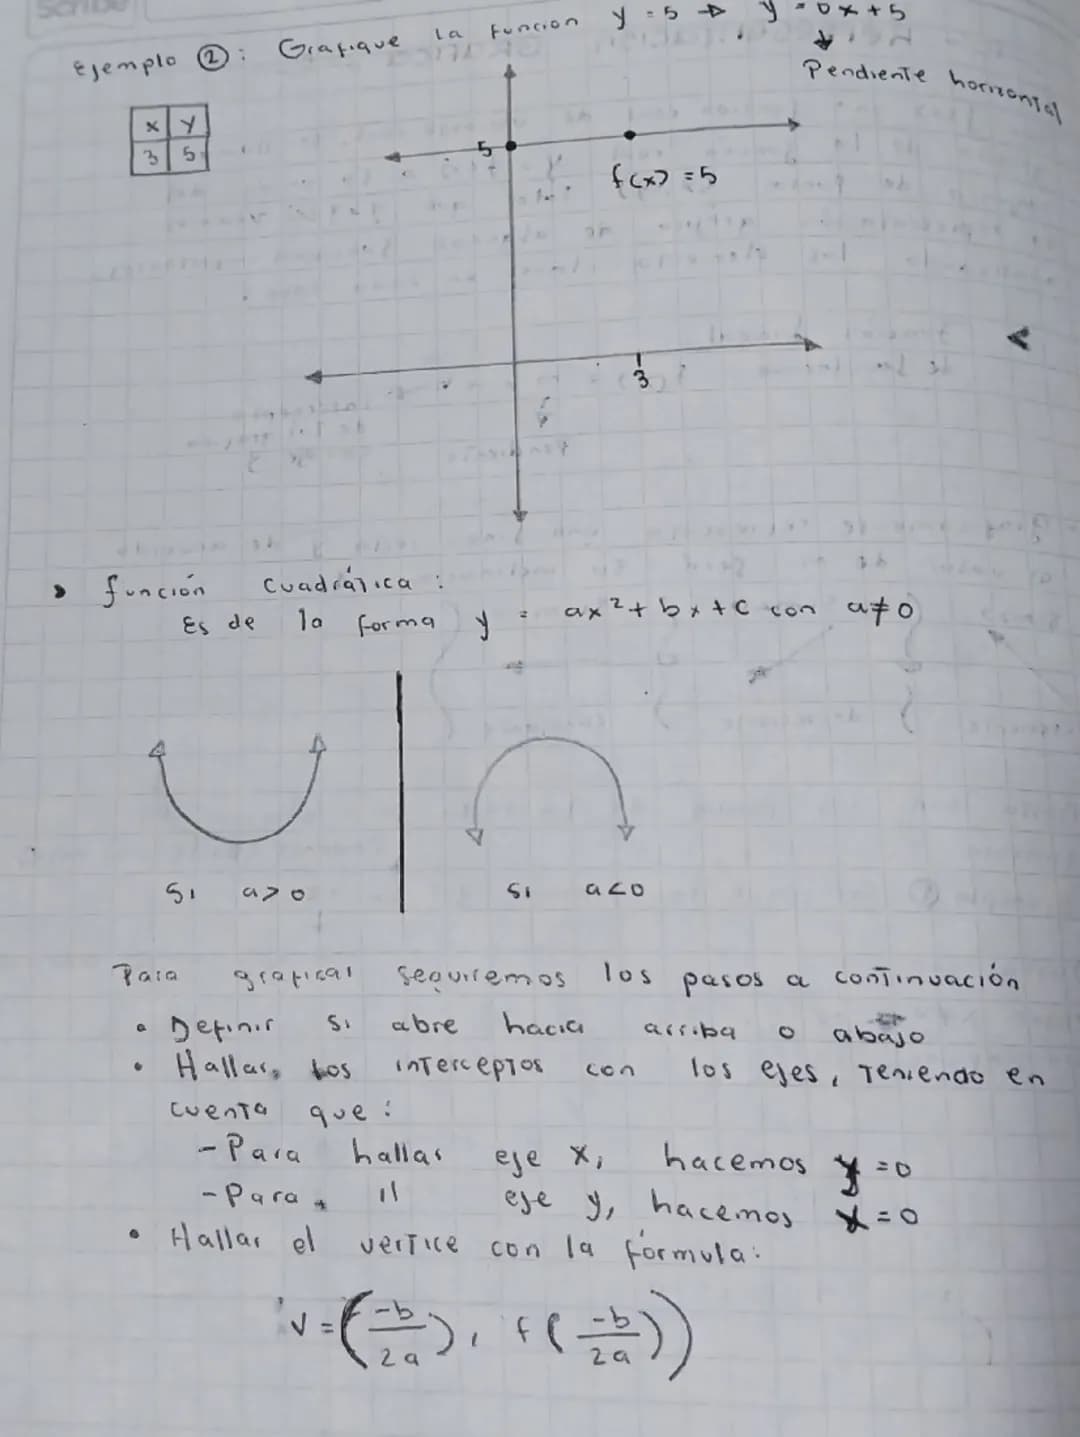 Scribe
Ejemplo ②: Grafique la función y = 5 → y = 0x + 5
↓
Pendiente horizontal
x y
3 5
5
f(x) = 5
3
función cuadrática:
Es de la forma y = ax² + bx + c con a ≠ 0
Si a > 0
Si a < 0
Para graficar seguiremos los pasos a continuación
• Definir si abre hacia arriba o abajo
• Hallar los interceptos con los ejes, Teniendo en
cuenta que:
- Para hallar eje x, hacemos y = 0
- Para 11 eje y, hacemos x = 0
• Hallar el vertice con la fórmula:
V = (-b/2a), f(-b/2a))